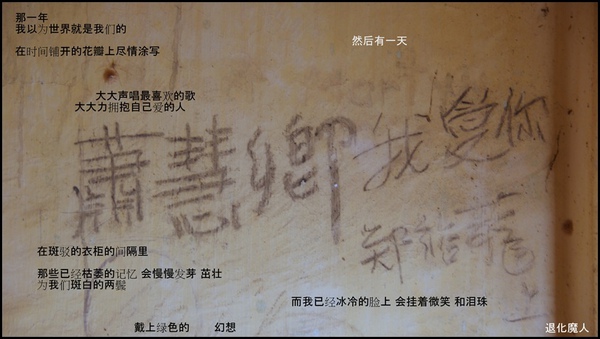 那一年
我以为世界就是我们的
在时间铺开的花瓣上尽情涂写
然后有一天
大大声唱最喜欢的歌
大大力拥抱自己爱的人
蕭慧卿我愛你
在斑驳的衣柜的间隔里
那些已经枯萎的记忆 会慢慢发芽 茁壮
为我们斑白的两鬓
而我已经冰冷的脸上 会挂着微笑 和泪珠
戴上绿色的 幻想
退化魔人